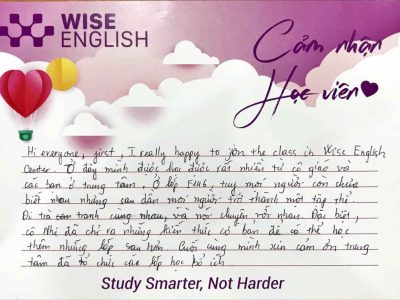 WISE
ENGLISH
Cảm nhận
Học viên
Hi everyone, first, I really happy to join the class in Wise English
Center. Ở đây mình được học được rất nhiều từ cô giáo và
các bạn ở trung tâm. Ở lớp FM6, tuy mọi người còn chưa
biết nhau nhưng sau dần mọi người trở thành một tập thể.
Đi trà tranh cùng nhau, và nói chuyện với nhau. Đặc biệt,
cô Nhi đã chỉ ra những kiến thức cơ bản để có thể học
thêm những lớp sau hơn. Cuối cùng mình xin cảm ơn trung
tâm đã tổ chức các lớp học bổ ích.
Study Smarter, Not Harder